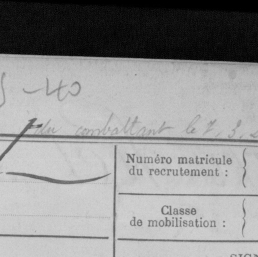 -40
du combattant le 7.3.
Numéro matricule
du recrutement :
Classe
de mobilisation :
SIGN